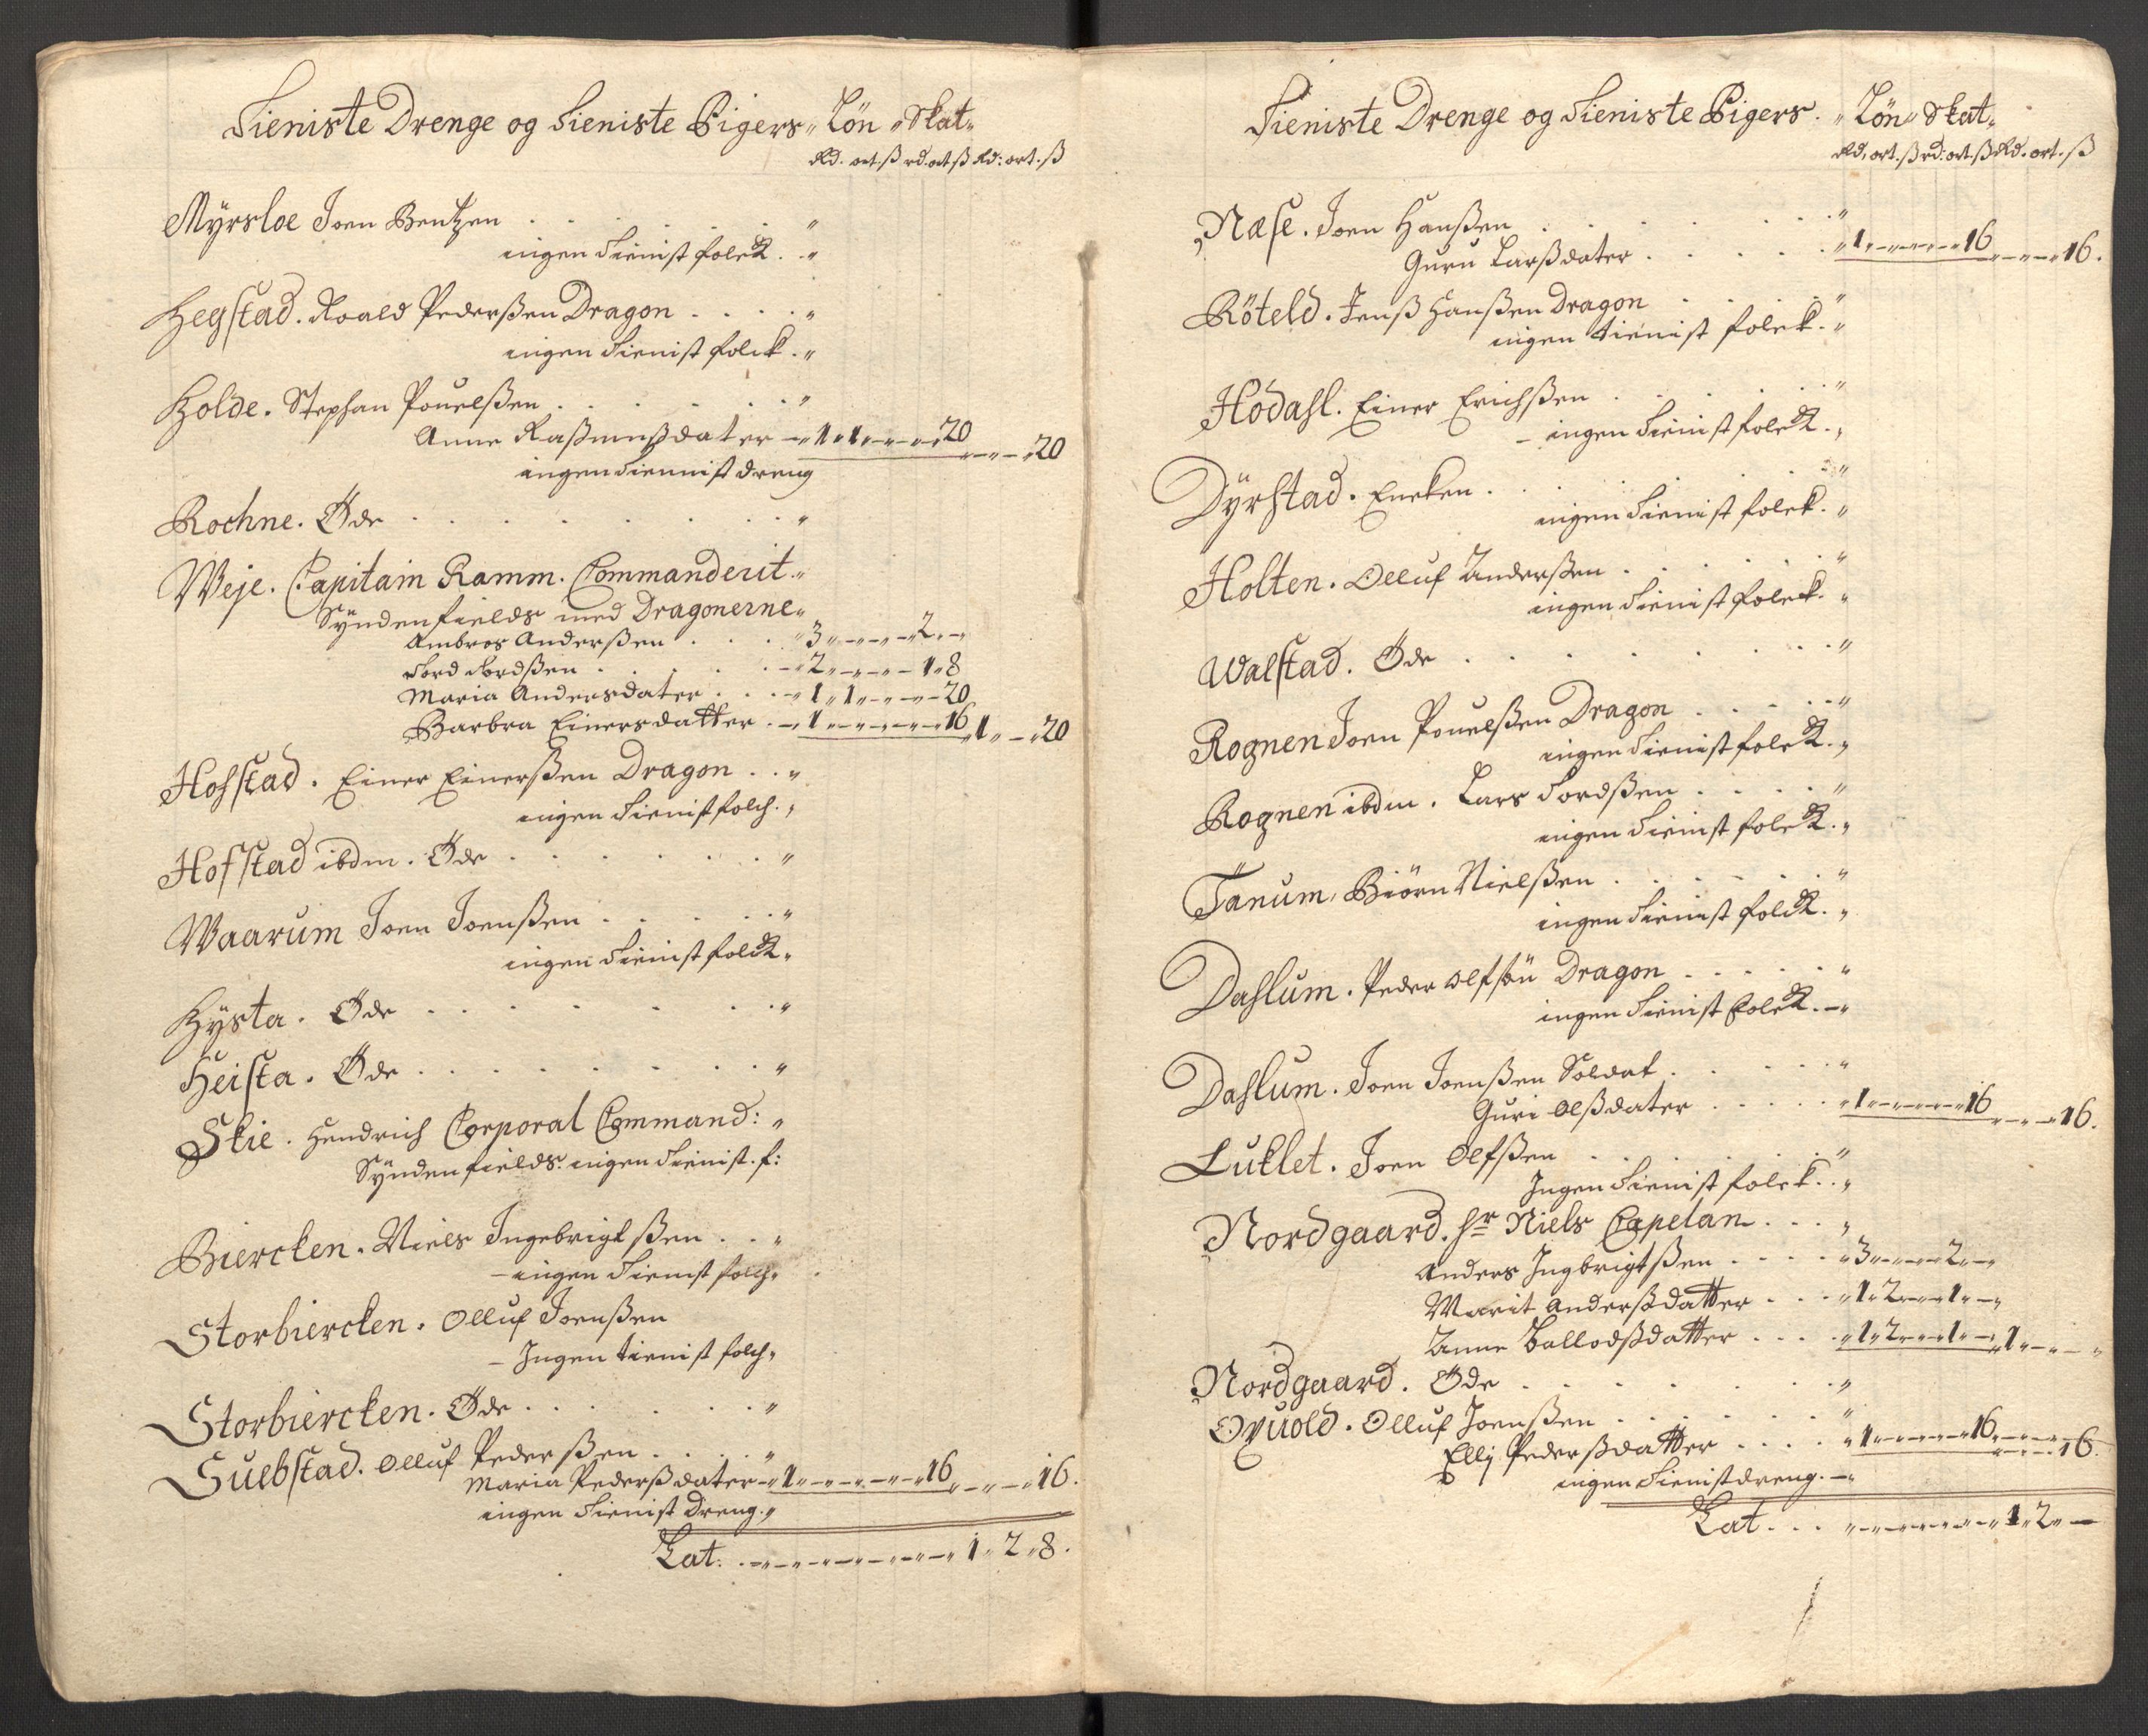 Tieniste Drenge og Tieniste Pigers „ Lön „ Skat„
Rd. ort. ß rd. ort ß Rd: ort. ß
Myrsloe Joen Bentzen . . . . . „
ingen Tienist folck . „
Hegstad. Roald Pederßen Dragon . . . . „
ingen Tienist folck . „
Holde. Stephan Pouelßen . . . . . „
Anne Raßmußdater „1„1„—„20 „—„20
ingen Tiennist dreng
Rochne. Öde . . . . . . „
Weje. Capitain Ramm. Commanderit „
Syndenfields med Dragonerne „
Ambros Anderßen . . . „3„—„—„2„—
Tord Tordßen . . . . . „2„—„—„1„8
Maria Andersdater . . . „1„1„—„—„20
Barbra Einersdatter . „1„—„—„—„16 „1„—„20
Hofstad. Einer Einerßen Dragon . . „
ingen Tienist folch . „
Hofstad ibdm. Öde . . . . . „
Waarum Joen Joenßen . . . . . „
ingen Tienist folck „
Hysta. Öde . . . . . . „
Heista. Öde . . . . . . „
Skie. Hendrich Corporal Command: „
Syndenfields. ingen Tienist. f:
Biercken. Niels Ingebrigtßen . . „
— ingen Tienist folch „
Storbiercken. Olluf Joenßen
— Ingen tienist folch „
Storbiercken. Öde . . . . . „
Sulbstad. Olluf Pederßen . . . . „
Maria Pederßdater „1„—„—„—„16 „—„—„16.
ingen Tienist Dreng „
Lat. . „—„—„—„—„—„ 1„2„8.
Tieniste Drenge og Tieniste Pigers. „ Lön „ Skat„
Rd. ort. ß rd: ort. ß Rd. ort. ß
Næse. Joen Hanßen . . . . . „
Guru Larßdater . . . . . „1„—„—„—„16 „—„—„16.
Röteld. Jenß Hanßen Dragon . . . „
ingen tienist folck . „
Hodahl. Einer Erichßen . . . . „
— ingen Tienist folck . „
Dyrstad. Encken . . . . . „
ingen Tienist folck . „
Holten. Olluf Anderßen . . . . „
ingen Tienist folck . „
Walstad. Öde . . . . . . „
Rognen Joen Pouelßen Dragon . . . . „
ingen Tienist folck . „
Rognen ibdm. Lars Tordßen . . . . „
ingen Tienist folck . „
Tanum. Biörn Nielßen . . . . . „
ingen Tienist folck . „
Dahlum. Peder Olfsön Dragon . . . . . „
ingen Tienist folck . — „
Dahlum. Joen Joenßen Soldat . . . . „
Guri Olßdater . . . . „1„—„—„—„16 „—„—„16.
Luklet. Joen Olfßen . . . . . „
Ingen Tienist folck . . „
Nordgaard. Hr Niels Capelan . . . „
Anders Ingbrigtßen . . . . „3„—„—„2„—„
Marit Anderßdatter . . . „1„2„—„1„—„
Anne Ballodßdatter . . . . „1„2„—„1„—„ „1„—„—„
Nordgaard. Öde . . . . . . „
Ovuold. Olluf Joenßen . . . . . „
Ellj Pederßdatter . . . . „1„—„—„—„16 „—„—„16.
ingen Tienistdreng . — „
Lat . . . „—„—„—„—„—„ 1„2„—